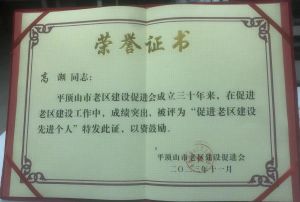 荣誉证书
高湖同志：
平顶山市老区建设促进会成立三十年来，在促进
老区建设工作中，成绩突出，被评为“促进老区建设
先进个人”特发此证，以资鼓励。
平顶山市老区建设促进会
二〇二三年十一月